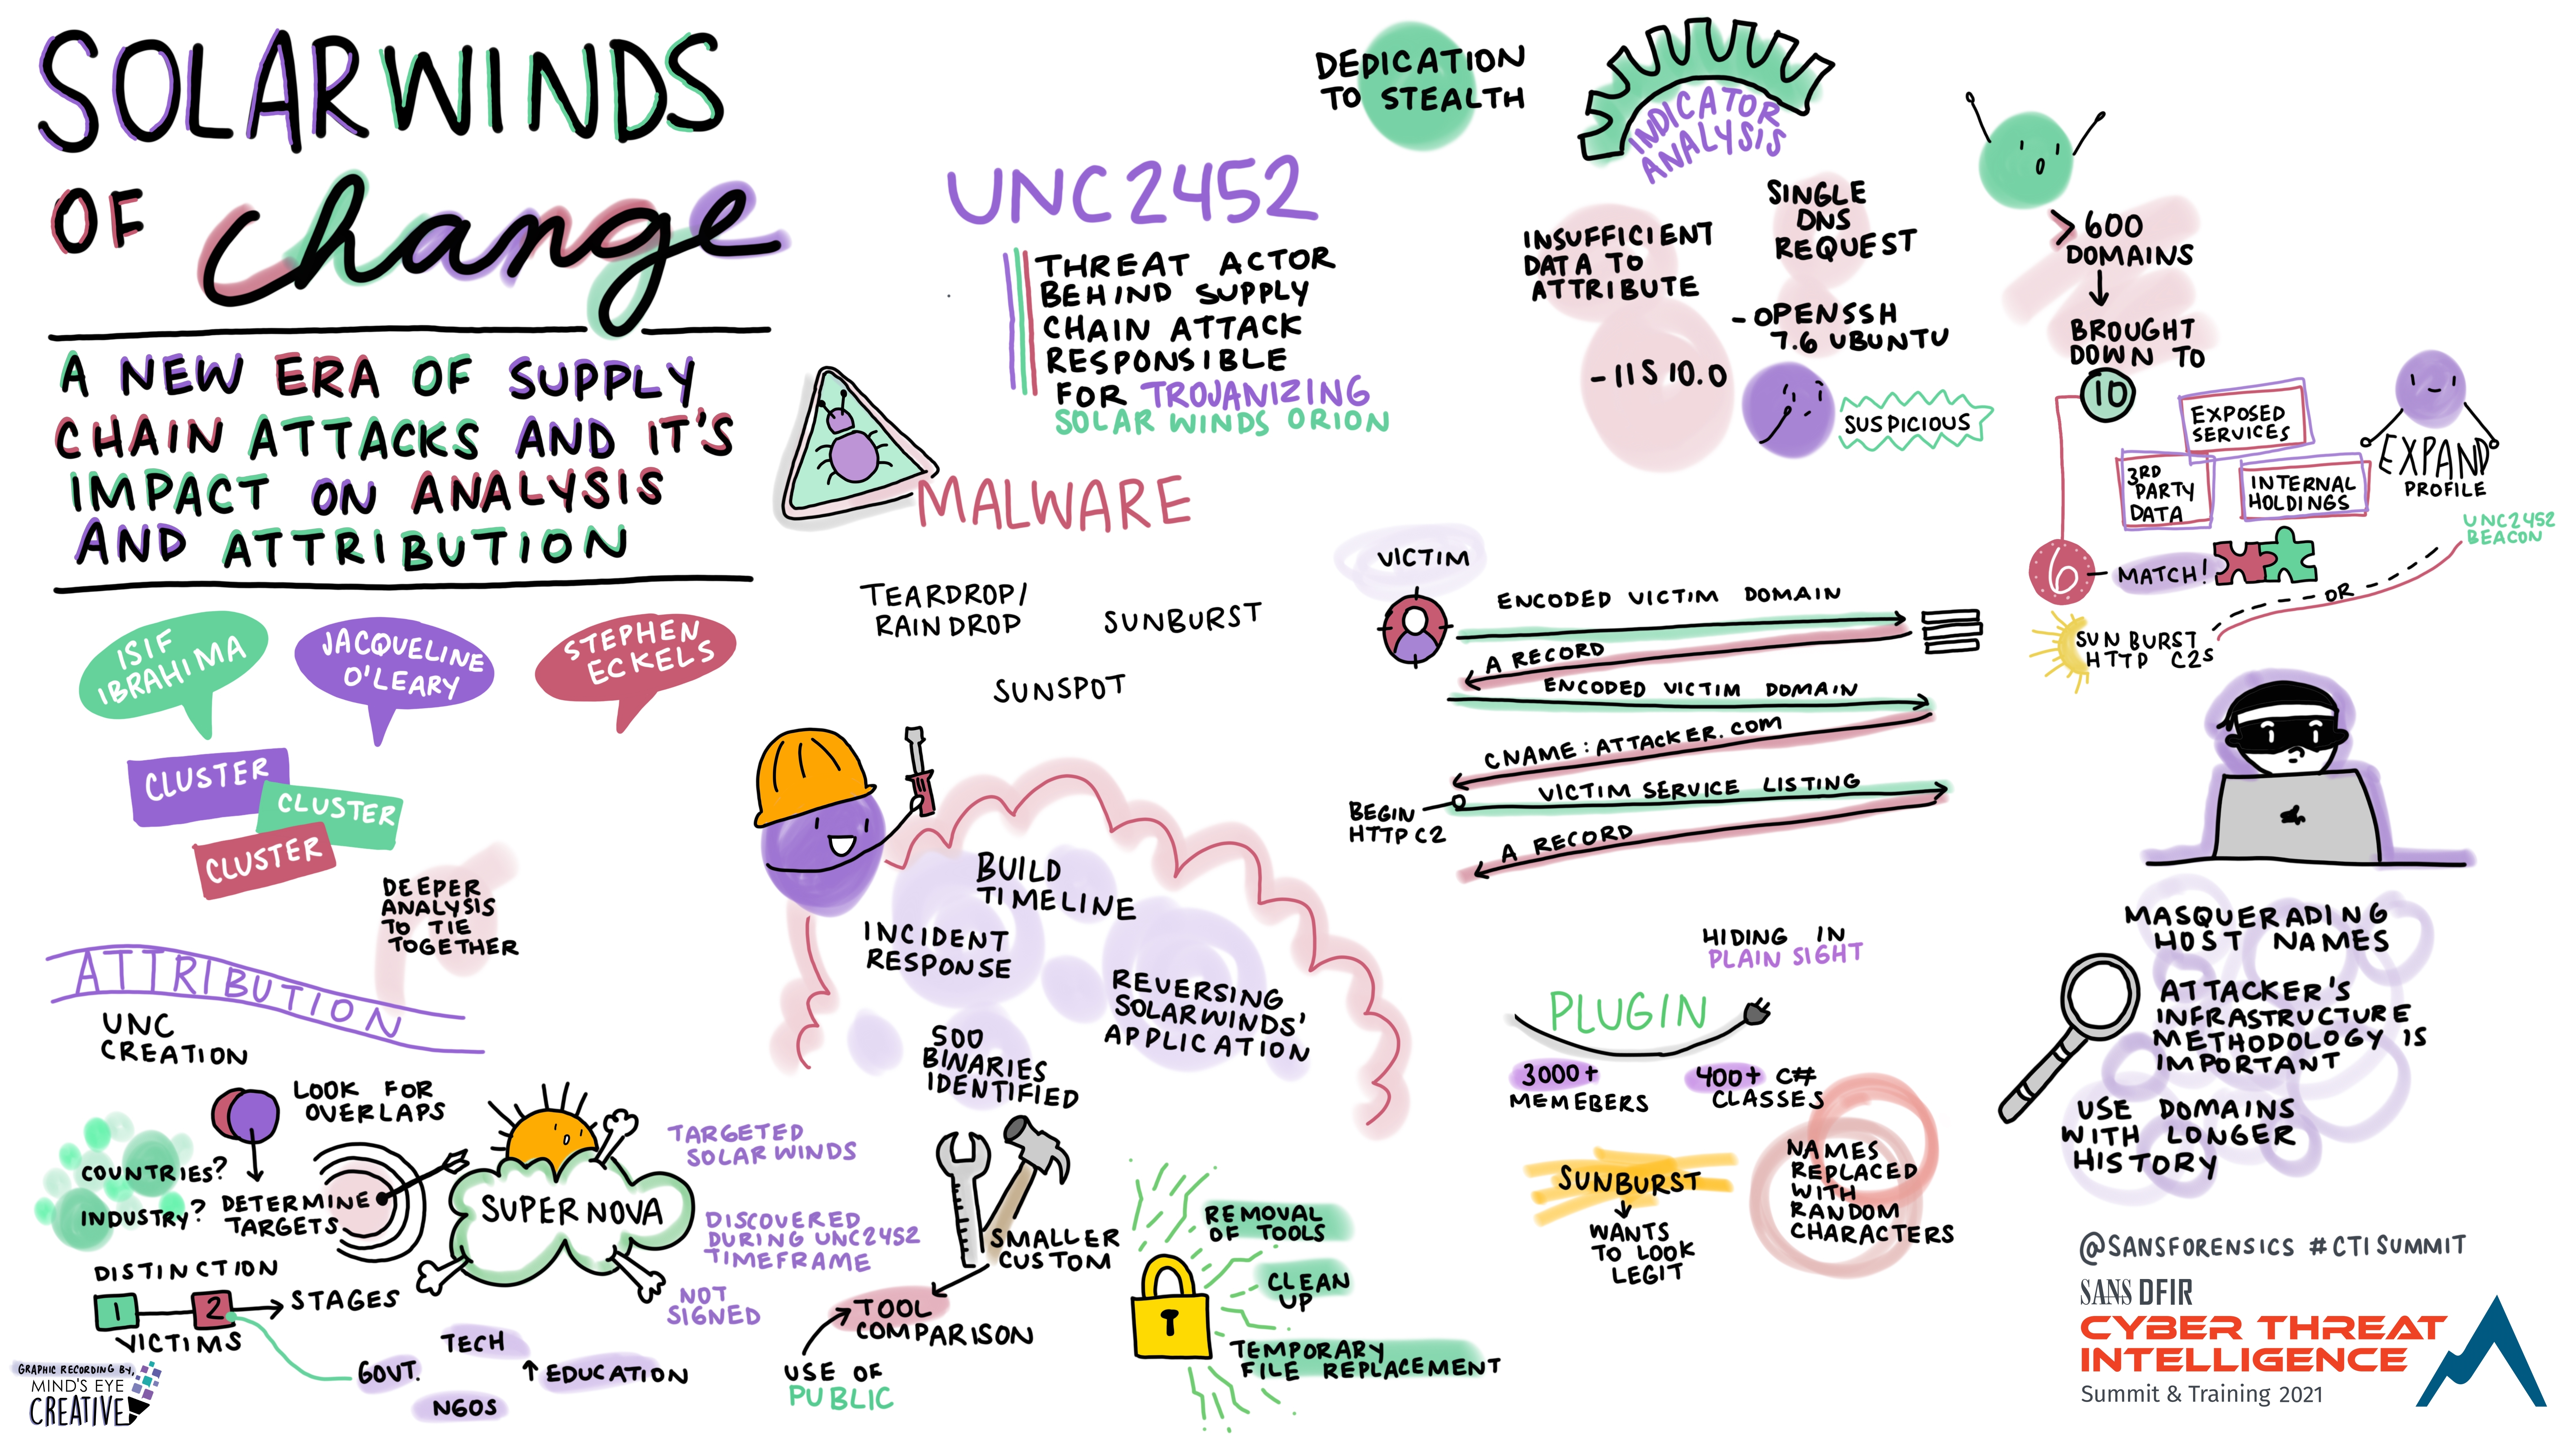 SOLARWINDS
OF change
A NEW ERA OF SUPPLY
CHAIN ATTACKS AND IT'S
IMPACT ON ANALYSIS
AND ATTRIBUTION
ISIF
IBRAHIMA
JACQUELINE
O'LEARY
STEPHEN
ECKELS
CLUSTER
CLUSTER
CLUSTER
DEEPER
ANALYSIS
TO TIE
TOGETHER
ATTRIBUTION
UNC
CREATION
LOOK FOR
OVERLAPS
COUNTRIES?
INDUSTRY?
DETERMINE
TARGETS
DISTINCTION
1
2
STAGES
VICTIMS
TECH
GOVT.
↑ EDUCATION
NGOS
SUPERNOVA
TARGETED
SOLARWINDS
DISCOVERED
DURING UNC2452
TIMEFRAME
NOT
SIGNED
GRAPHIC RECORDING BY,
MIND'S EYE
CREATIVE
UNC2452
THREAT ACTOR
BEHIND SUPPLY
CHAIN ATTACK
RESPONSIBLE
FOR TROJANIZING
SOLAR WINDS ORION
MALWARE
TEARDROP/
RAINDROP
SUNBURST
SUNSPOT
BUILD
TIMELINE
INCIDENT
RESPONSE
REVERSING
SOLARWINDS'
APPLICATION
500
BINARIES
IDENTIFIED
SMALLER
CUSTOM
TOOL
COMPARISON
USE OF
PUBLIC
REMOVAL
OF TOOLS
CLEAN
UP
TEMPORARY
FILE REPLACEMENT
DEDICATION
TO STEALTH
INDICATOR
ANALYSIS
INSUFFICIENT
DATA TO
ATTRIBUTE
- IIS 10.0
SINGLE
DNS
REQUEST
- OPENSSH
7.6 UBUNTU
SUSPICIOUS
>600
DOMAINS
BROUGHT
DOWN TO
10
EXPOSED
SERVICES
3RD
PARTY
DATA
INTERNAL
HOLDINGS
EXPAND
PROFILE
6
- MATCH!
UNC2452
BEACON
OR
SUNBURST
HTTP C2s
VICTIM
ENCODED VICTIM DOMAIN
A RECORD
ENCODED VICTIM DOMAIN
CNAME: ATTACKER.COM
VICTIM SERVICE LISTING
BEGIN
HTTP C2
A RECORD
HIDING IN
PLAIN SIGHT
PLUGIN
3000+
MEMEBERS
400+ C#
CLASSES
SUNBURST
WANTS
TO LOOK
LEGIT
NAMES
REPLACED
WITH
RANDOM
CHARACTERS
MASQUERADING
HOST NAMES
ATTACKER'S
INFRASTRUCTURE
METHODOLOGY IS
IMPORTANT
USE DOMAINS
WITH LONGER
HISTORY
@SANSFORENSICS #CTISUMMIT
SANS DFIR
CYBER THREAT
INTELLIGENCE
Summit & Training 2021